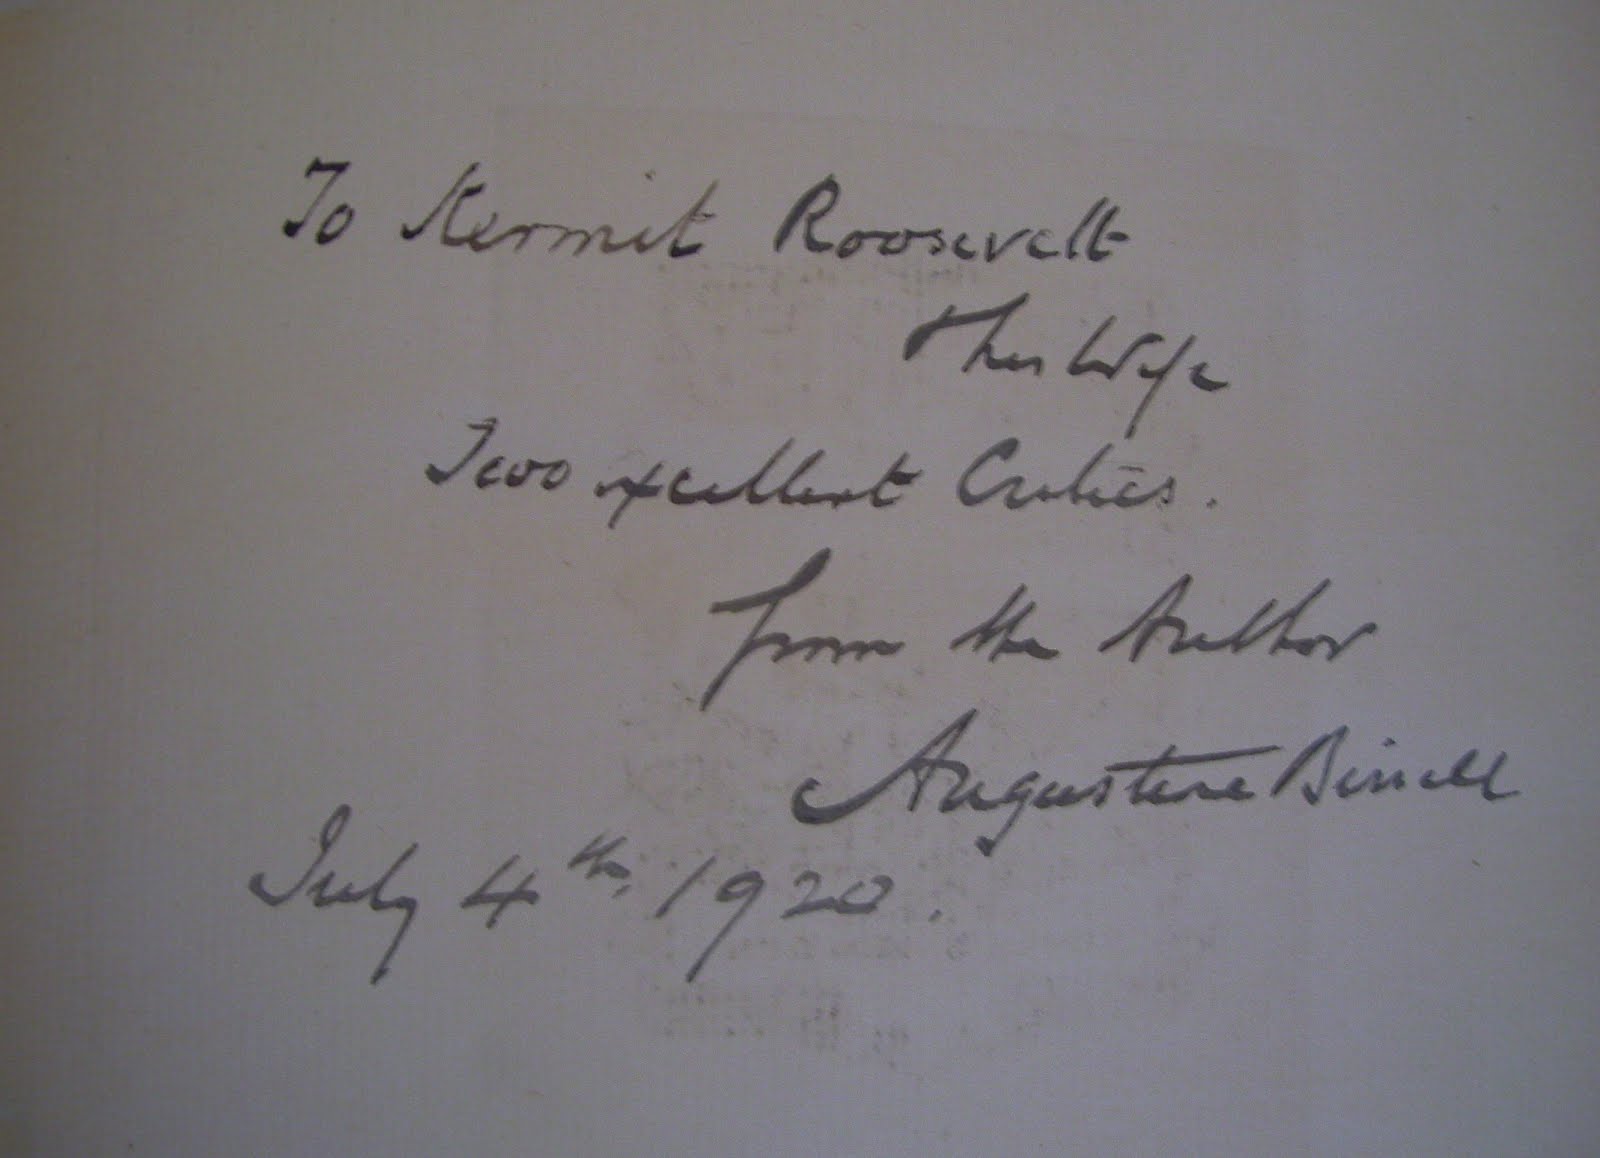 To Kermit Roosevelt
& his Wife
Two excellent Critics.
from the Author
Augustine Birrell
July 4th, 1920.